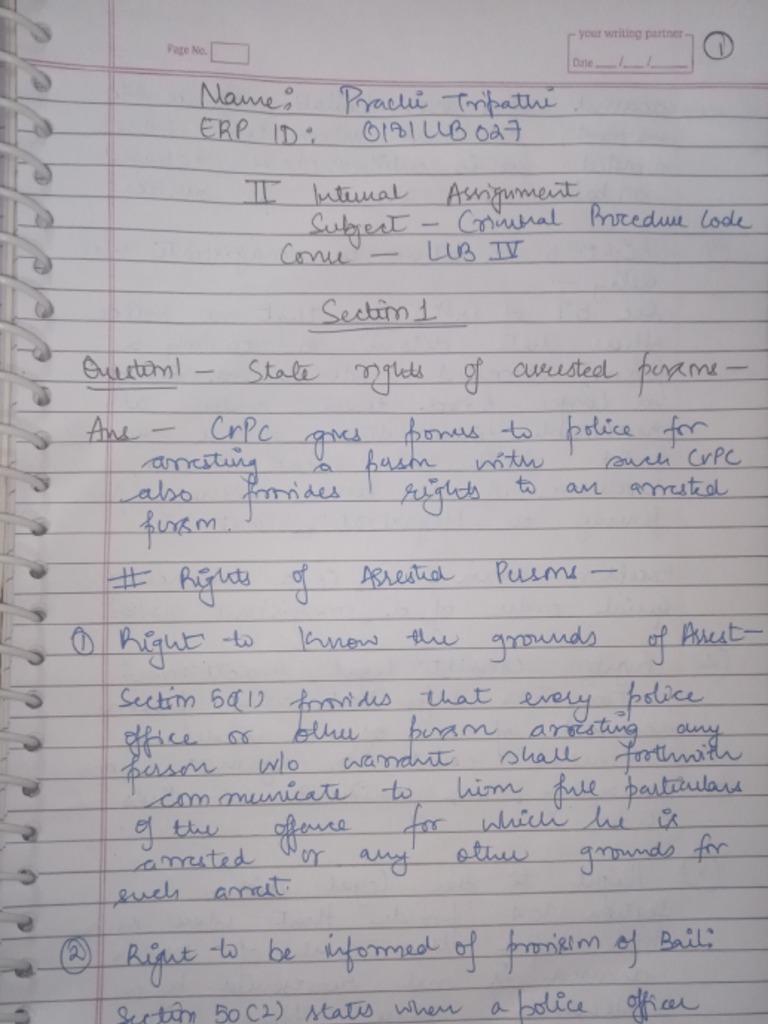 Page No.
your writing partner
Date __/__/__
1
Name: Prachi Tripathi
ERP ID: 0191LLB027
II Internal Assignment
Subject - Criminal Procedure Code
Course - LLB IV
Section 1
Question 1 - State rights of arrested persons -
Ans - CrPC gives powers to police for
arresting a person with such CrPC
also provides rights to an arrested
person.
# Rights of Arrested Persons -
1 Right to know the grounds of Arrest -
Section 50(1) provides that every police
office or other person arresting any
person w/o warrant shall forthwith
communicate to him full particulars
of the offence for which he is
arrested or any other grounds for
such arrest.
2 Right to be informed of provision of Bail:
Section 50(2) states when a police officer